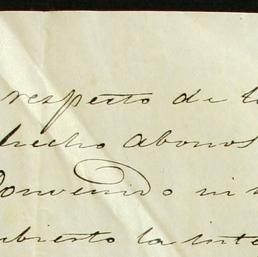 respecto de l
hecho abonos
Convenido ni
ubierto la inte